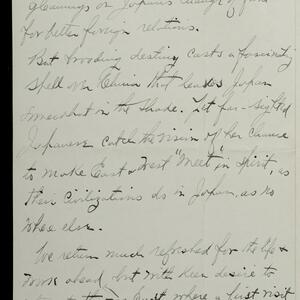 gleanings on Japan's change of face
for better foreign relations.
But brooding destiny casts a fascinating
spell over China that leaves Japan
somewhat in the shade. Yet far-sighted
Japanese catch the vision of her chance
to make East & West "Meet" in spirit, as
their civilizations do in Japan, as no
where else.
We return much refreshed for the life &
work ahead, but with keen desire to
where a first visit